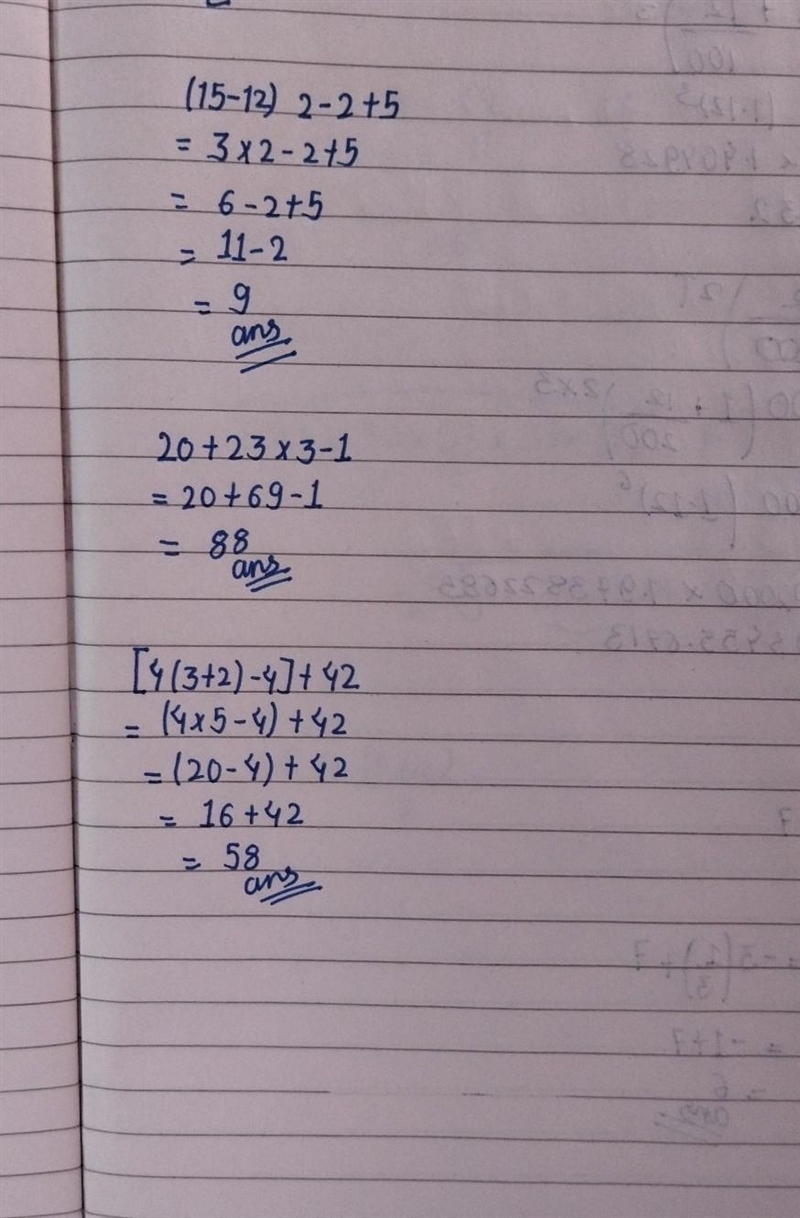 (15-12) 2-2+5
= 3×2-2+5
= 6-2+5
= 11-2
= 9
ans
20+23×3-1
= 20+69-1
= 88
ans
[4(3+2)-4]+42
= (4×5-4)+42
= (20-4)+42
= 16+42
= 58
ans